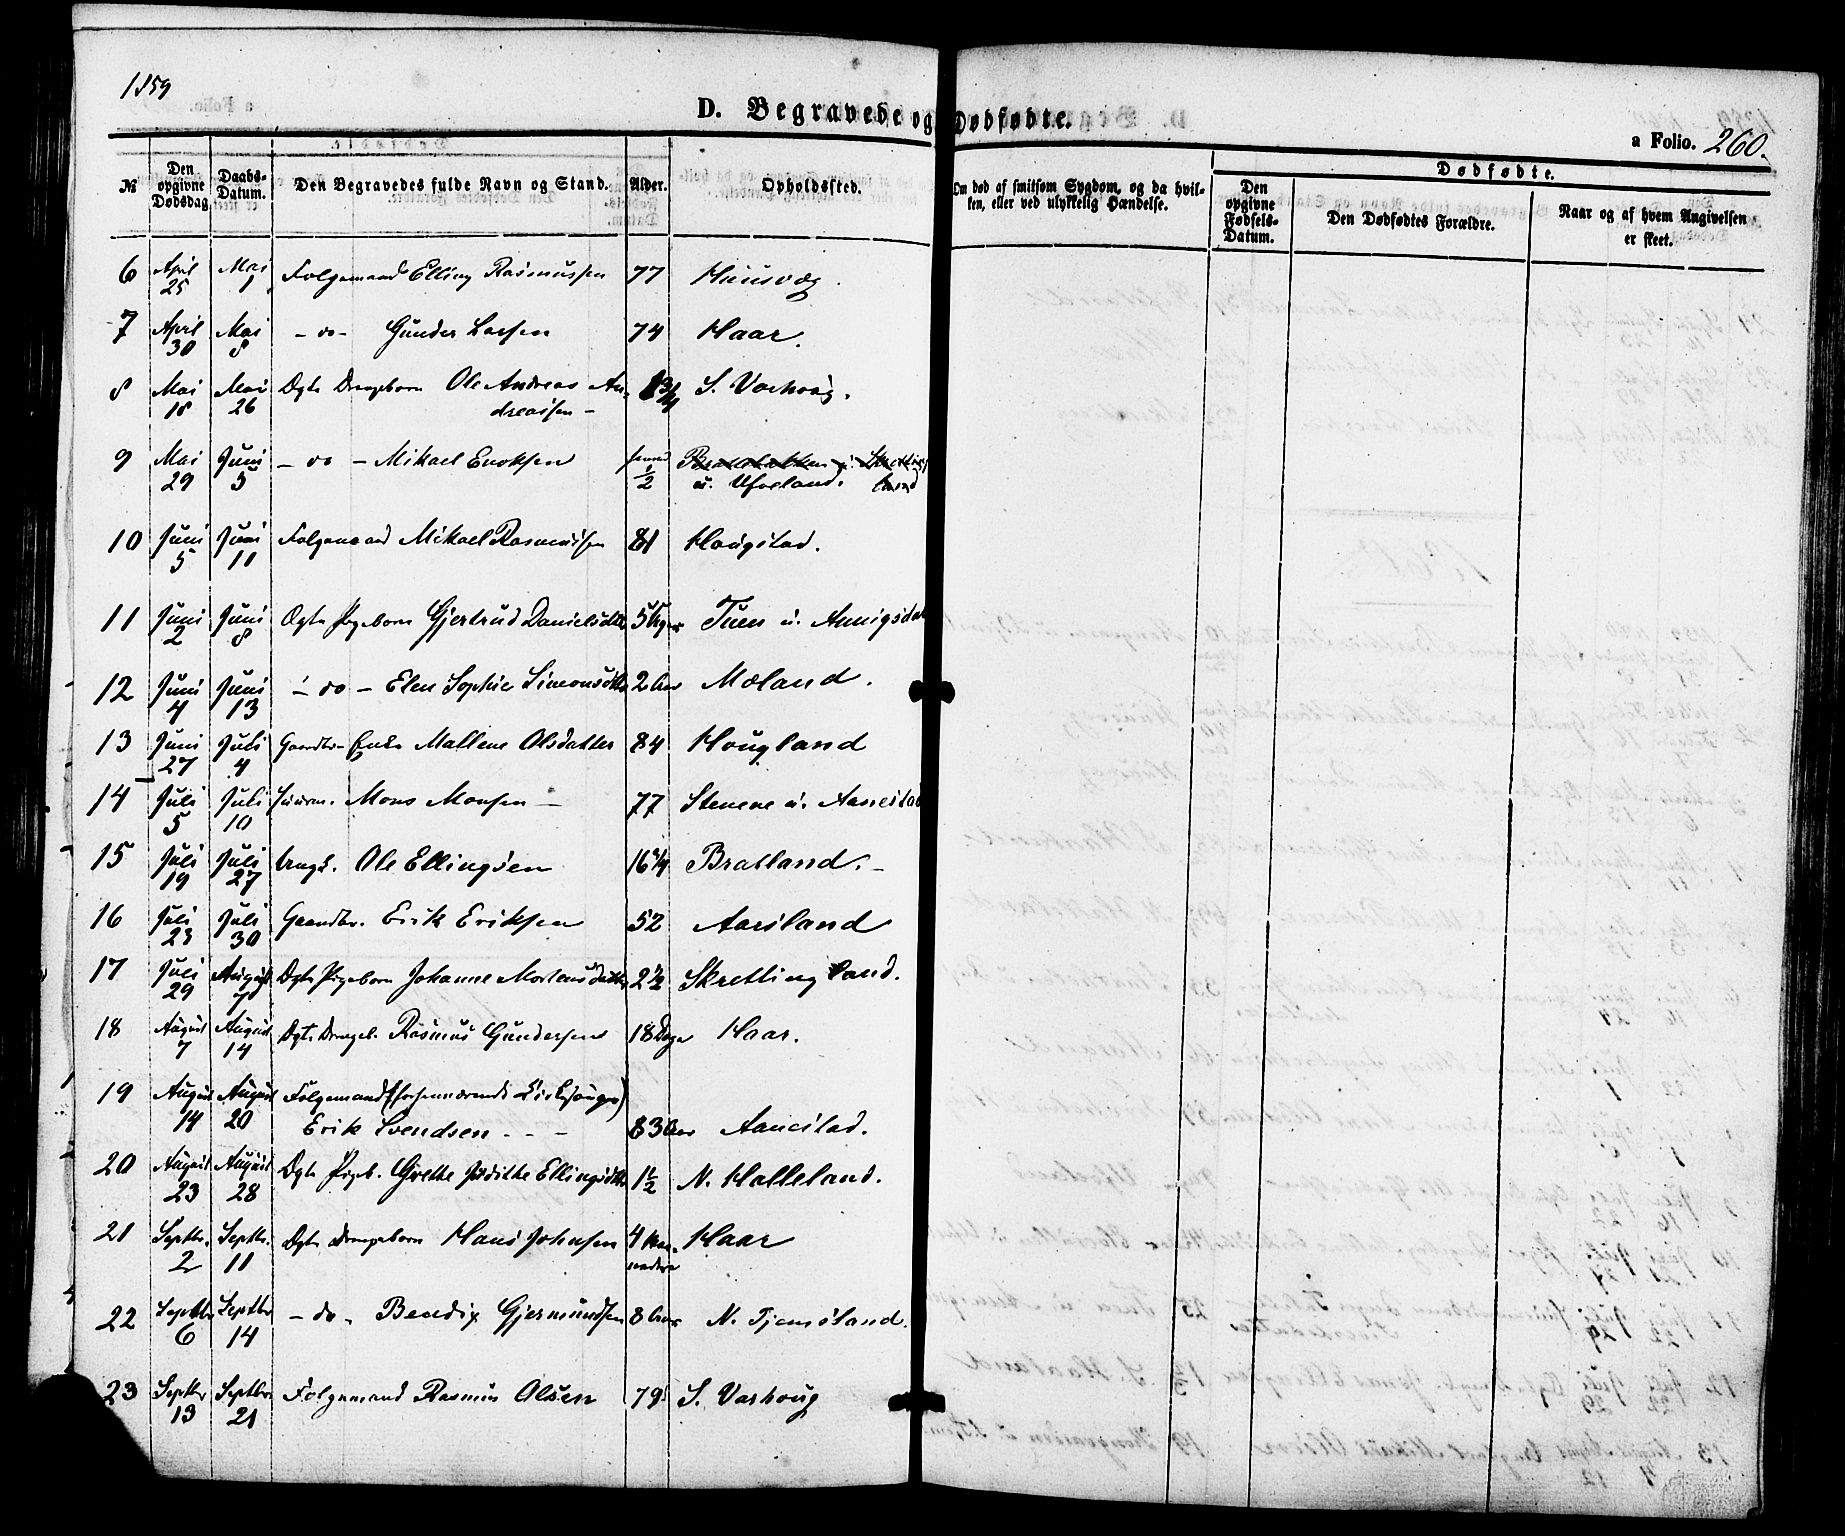 1859
D. Begravede og Dødfødte.
a Folio. 260.
№ Den opgivne Dødsdag Daabs-Datum. Den Begravedes fulde Navn og Stand. Alder. Opholdssted. Om død af smitsom Sygdom, og da hvilken, eller ved ulykkelig Hændelse. Dødfødte.
Den opgivne Fødsels-Datum. Den Dødfødtes Forældre. Naar og af hvem Angivelsen er skeet.
6 April 25 Mai 1 Folgemand Elling Rasmussen 77 Huusvæg.
7 April 30 Mai 8 - do - Gunder Larsen 74 Haar.
8 Mai 18 Mai 26 Ægte Drengebarn Ole Andreas An-
dreassen - 1 3/4 S. Varhoug.
9 Mai 29 Juni 5 - do - Mikael Enoksen 1/2
u. Ufseland.
10 Juni 5 Juni 11 Folgemand Mikael Rasmussen 81 Hougstad.
11 Juni 2 Juni 8 Ægte Pigebarn Gjertrud Danielsdtr 5 Uger Tuen u. Aunigsda
12 Juni 4 Juni 13 - do - Elen Sophie Simonsdtr 2 Aar Møland.
13 Juni 27 Juli 4 Gaardbr- Enke Mallene Olsdatter 84 Hougland
14 Juli 5 Juli 10 Huusm. Mons Monsen - 77 Stenene u. Aanestad
15 Juli 19 Juli 27 Ungk. Ole Ellingsen 16 3/4 Bratland. -
16 Juli 23 Juli 30 Gaardbr. Erik Eriksen 52 Aarsland
17 Juli 29 August 7 Ægte Pigebarn Johanne Mortensdatter 2 1/2 Skretting land.
18 August 7 August 14 Ægte Drengeb. Rasmus Gundersen 18 Dage Haar.
19 August 14 August 20 Folgemand (forhenværende Kirkesanger)
Erik Svendsen - - - 83 Aar Aanestad.
20 August 23 August 28 Ægte Pigeb. Grethe Judithe Ellingsdtr 1 1/2 N. Halleland.
21 Septbr. 2 Septbr. 11 Ægte Drengebarn Hans Johnsen 4 Maaneder Haar
22 Septbr 6 Septbr 14 - do - Bendix Gjermundsen 8 Aar N. Tjemsland.
23 Septbr 13 Septbr 21 Folgemand Rasmus Olsen 79 S. Varhoug